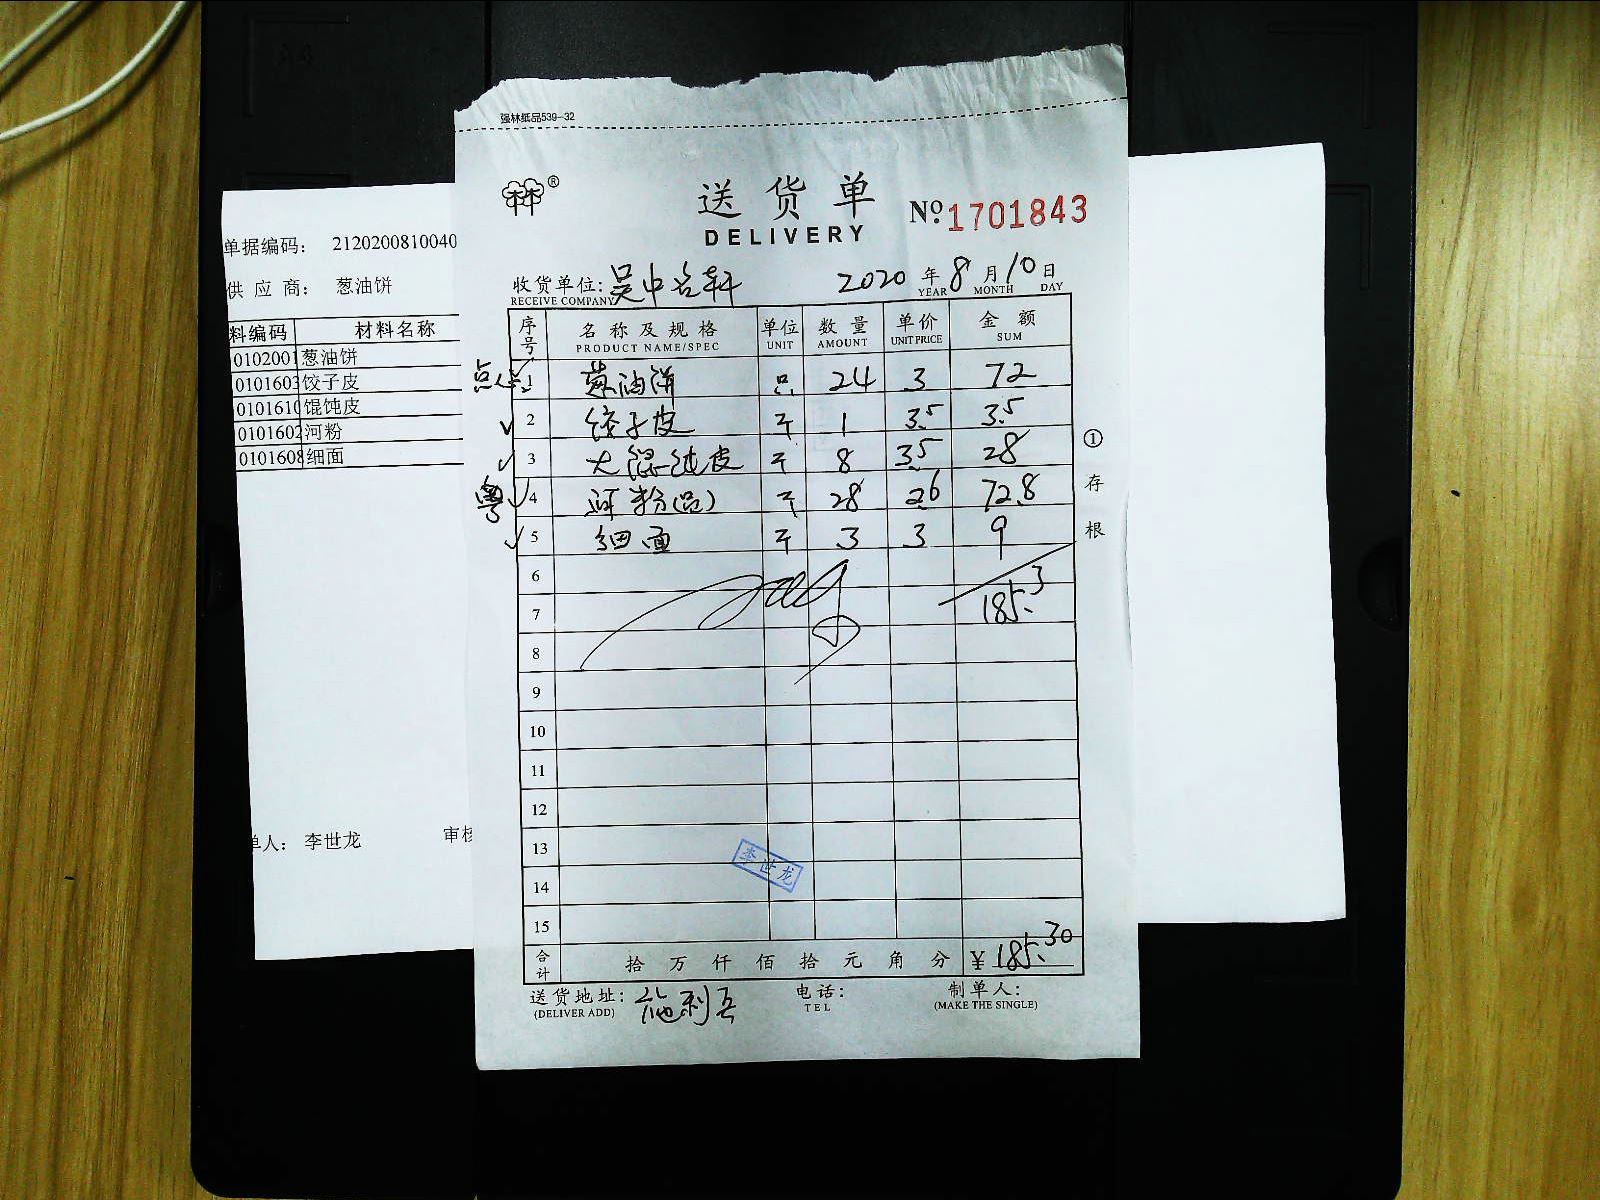 强林纸品539-32
林林®
送货单
DELIVERY
№ 1701843
收货单位: 吴中宏轩 2020 年 8 月 10 日
RECEIVE COMPANY YEAR MONTH DAY
序号 名称及规格 单位 数量 单价 金额
PRODUCT NAME/SPEC UNIT AMOUNT UNIT PRICE SUM
点心 1 葱油饼 24 3 72
2 饺子皮 斤 1 3.5 3.5
3 大馄饨皮 斤 8 3.5 28
粤 4 河粉(品) 斤 28 2.6 72.8
5 细面 斤 3 3 9
6
7 185.3
8
9
10
11
12
13
14
15
李世龙
合计 拾 万 仟 佰 拾 元 角 分 ¥ 185.30
送货地址: 电话: 制单人:
(DELIVER ADD) TEL (MAKE THE SINGLE)
① 存根
单据编码: 2120200810040
供应商: 葱油饼
料编码 材料名称
0102001 葱油饼
0101603 饺子皮
0101610 馄饨皮
0101602 河粉
0101608 细面
单人: 李世龙 审核